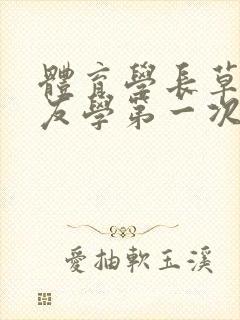 體育學長草
友學第一次
愛抽軟玉溪